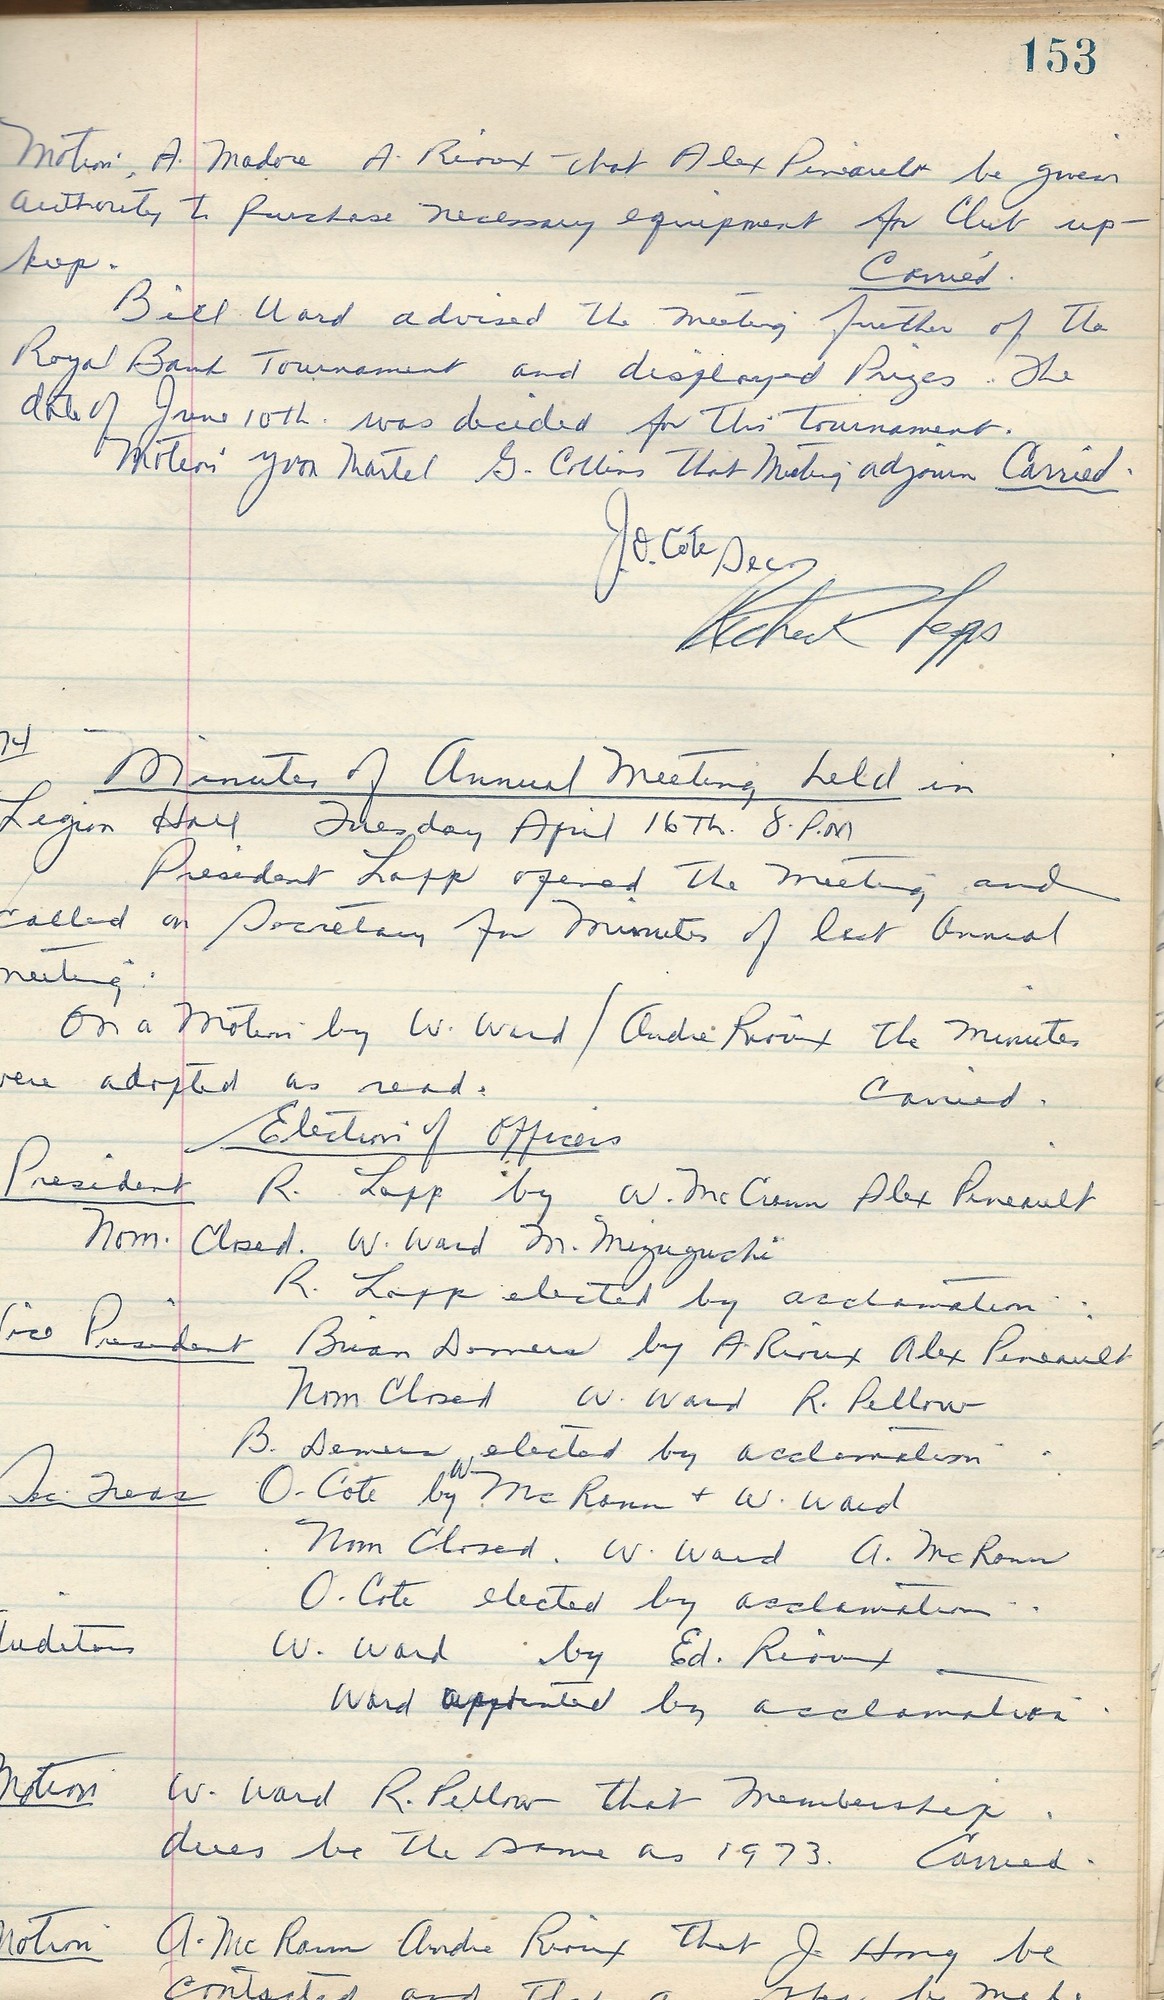 153
Motion, A. Madore A. Rioux that Alex Pineault be given
authority to purchase necessary equipment for Club up-
keep. Carried.
Bill Ward advised the meeting further of the
Royal Bank Tournament and displayed Prizes. The
date of June 10th. was decided for this tournament.
Motion Yvon Martel G. Collins that Meeting adjourn Carried.
J.O. Cote Secy
74
Minutes of Annual Meeting held in
Legion Hall Tuesday April 16th. 8. P.M
President Lapp opened the meeting and
called on Secretary for Minutes of last Annual
meeting:
On a Motion by W. Ward / Andre Rioux the minutes
were adopted as read. Carried.
Election of Officers
President R. Lapp by W. McCrann Alex Pineault
Nom. Closed. W. Ward M. Mizuguchi
R. Lapp elected by acclamation.
Vice President Brian Demers by A. Rioux Alex Pineault
Nom Closed W. Ward R. Pellow
B. Demers elected by acclamation.
Sec. Treas O. Cote by W McRann + W. Ward
Nom Closed. W. Ward A. McRann
O. Cote elected by acclamation.
Auditors W. Ward by Ed. Rioux
Ward appointed by acclamation.
Motion W. Ward R. Pellow that Membership
dues be the same as 1973. Carried.
Motion A. McRann Andre Rioux that J. Hong be
contacted and that a be made